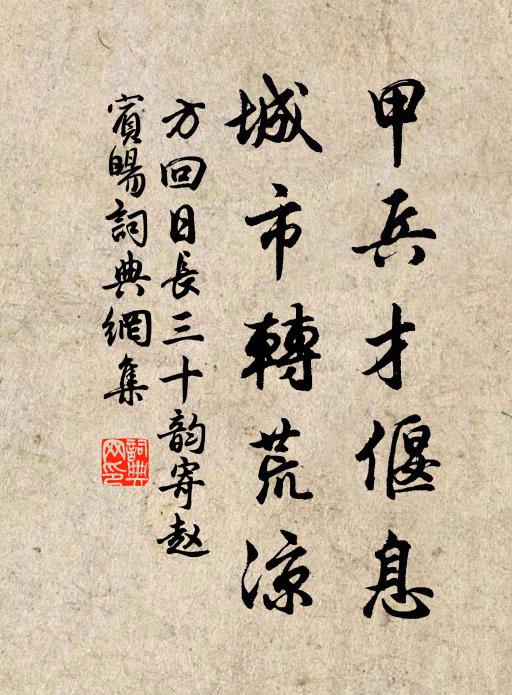 甲兵才偃息
城市轉荒凉
方回日長三十韵寄赵
賓暘詞典網集
詞典
网印